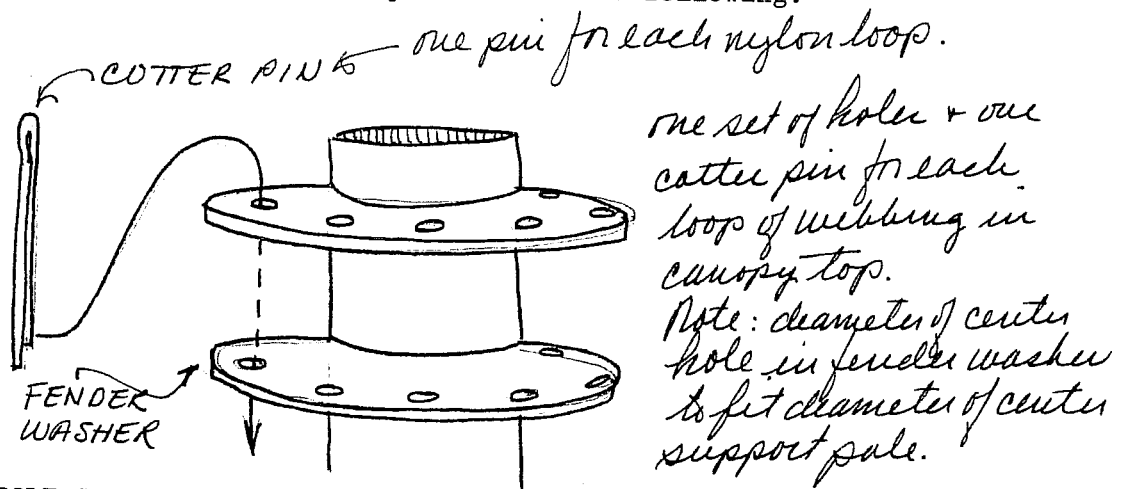 following:
one pin for each nylon loop.
COTTER PIN
one set of holes + one
cotter pin for each
loop of webbing in
canopy top.
Note: diameter of center
hole in fender washer
to fit diameter of center
support pole.
FENDER
WASHER